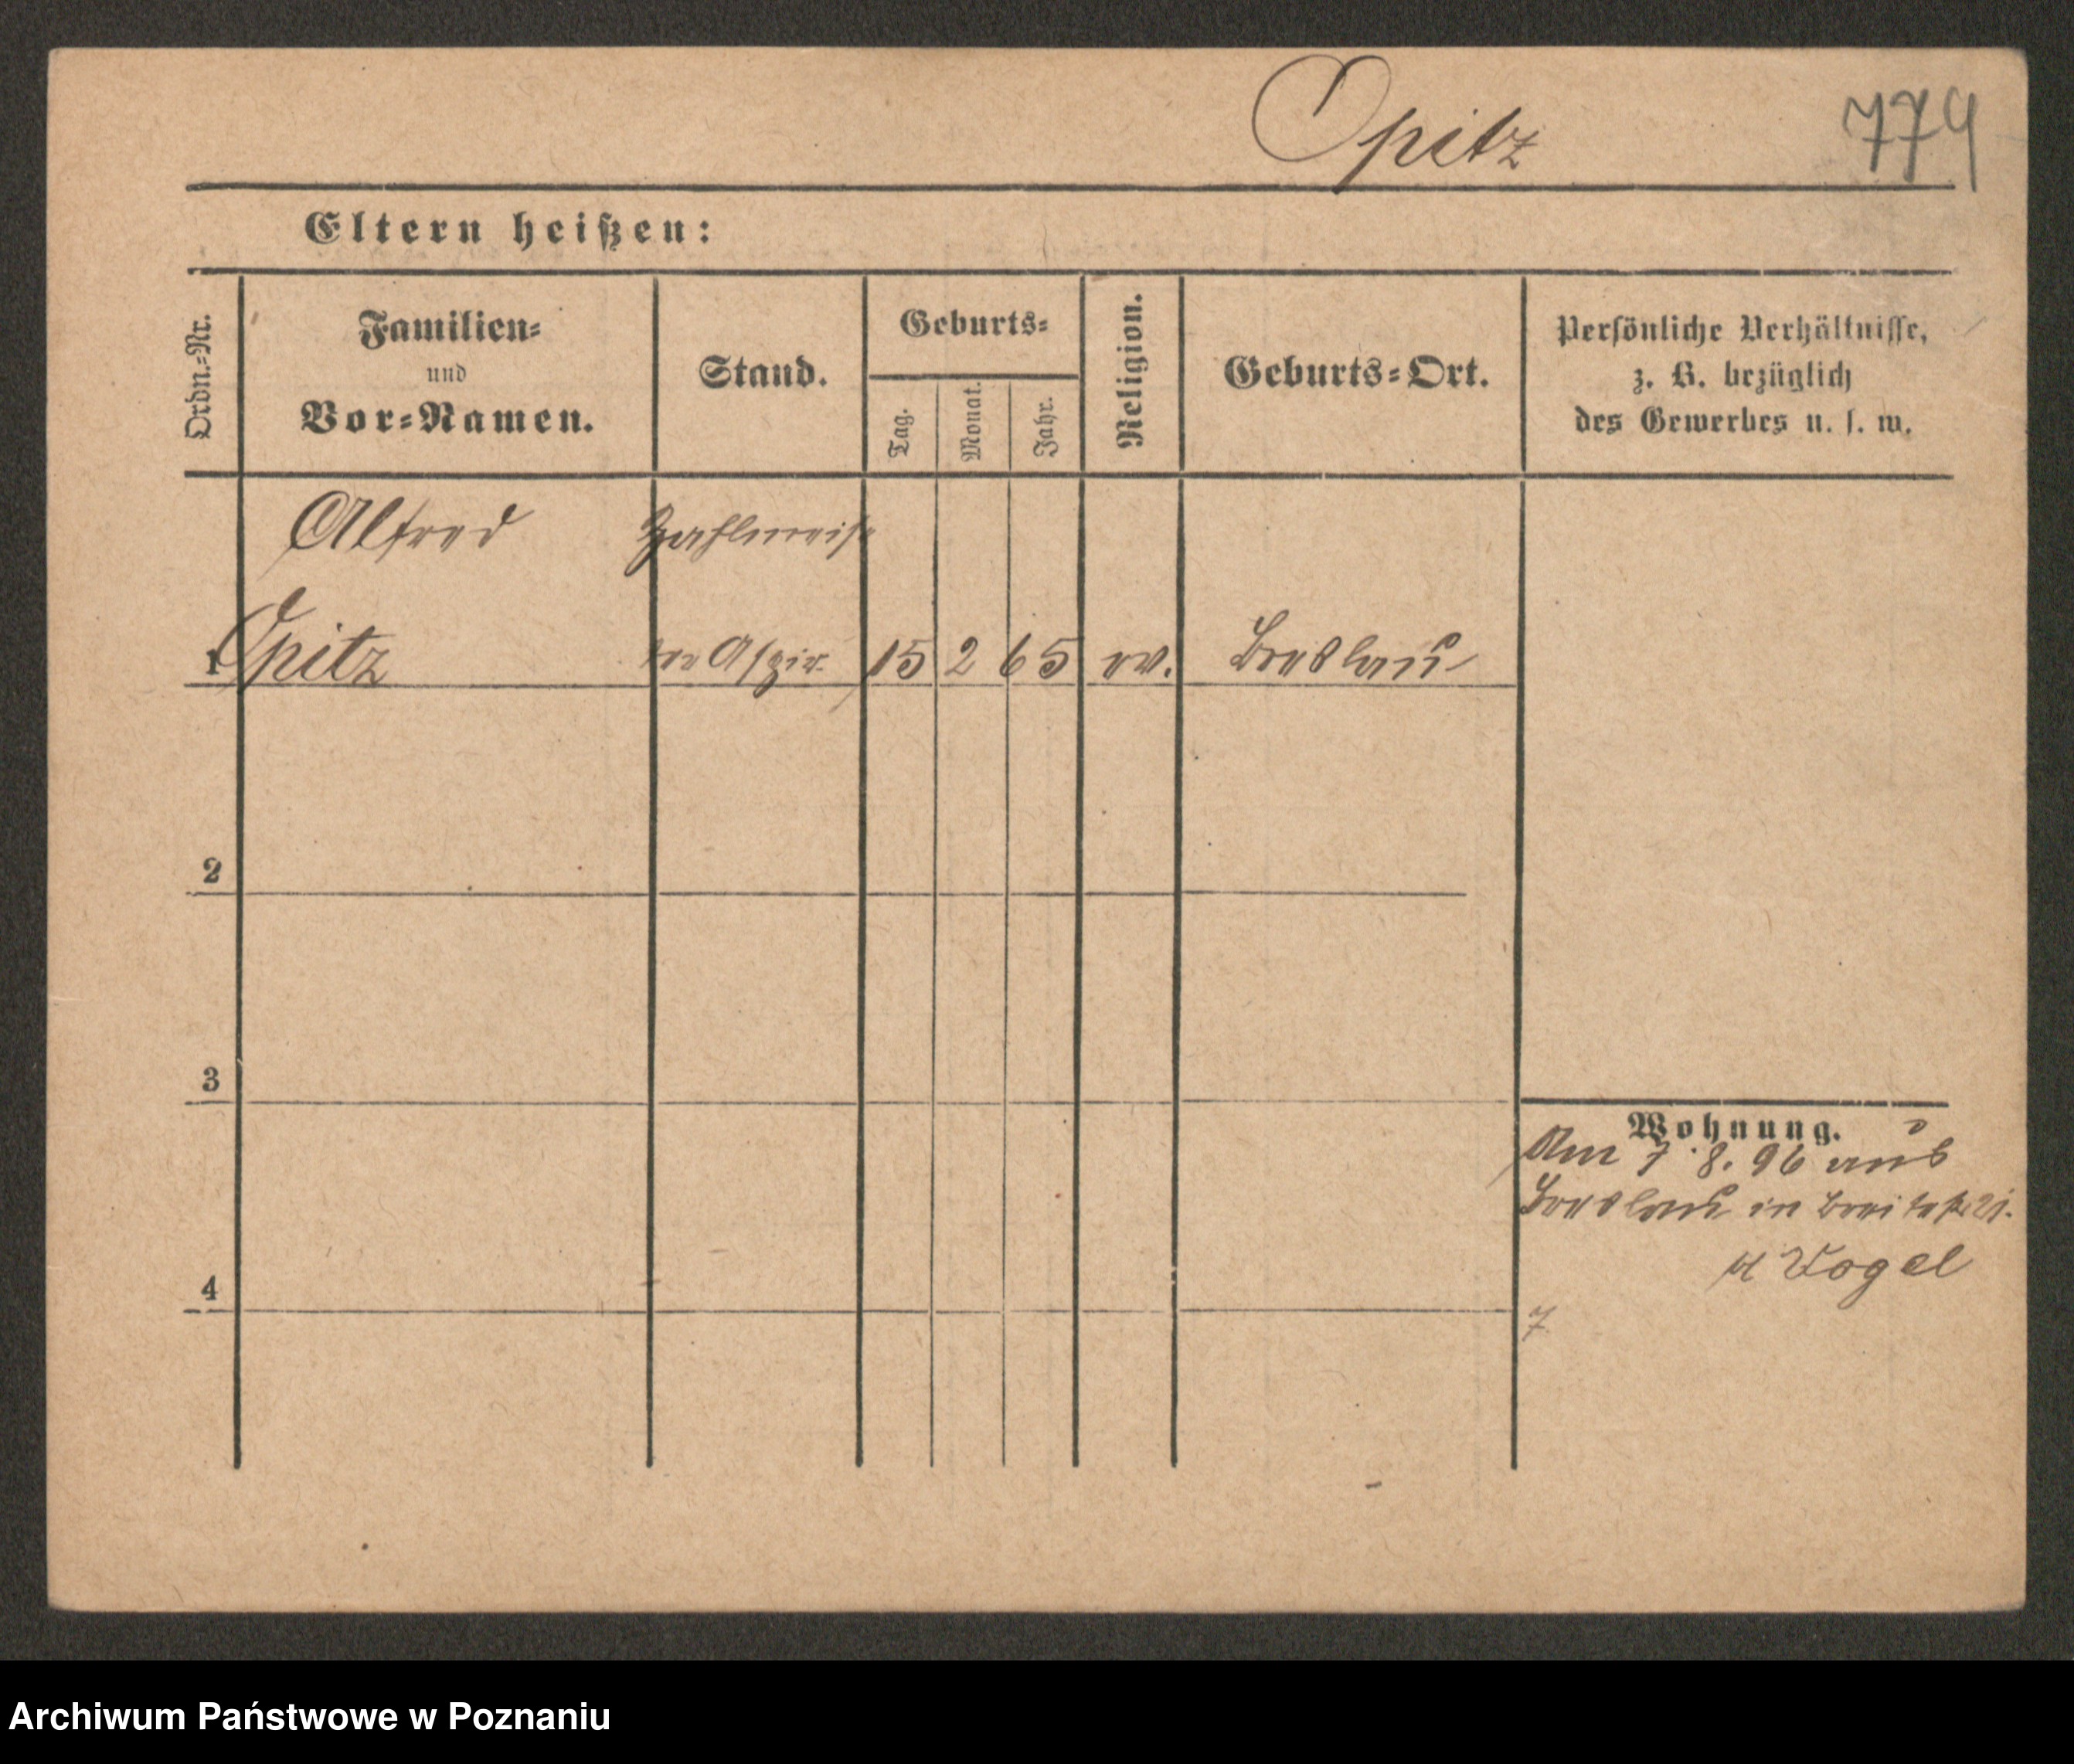 Opitz
779
Eltern heißen:
Ordn.-Nr.
Familien-
und
Vor-Namen.
Stand.
Geburts-
Tag.
Monat.
Jahr.
Religion.
Geburts-Ort.
Persönliche Verhältnisse,
z. B. bezüglich
des Gewerbes u. s. w.
Alfred Zahlmeis
1 Opitz ter Aspir. 15 2 65 ev. Breslau
2
3
4
Wohnung.
Am 7.8.96 aus
Breslau in Breitestr 21.
Vogel
7
Archiwum Państwowe w Poznaniu